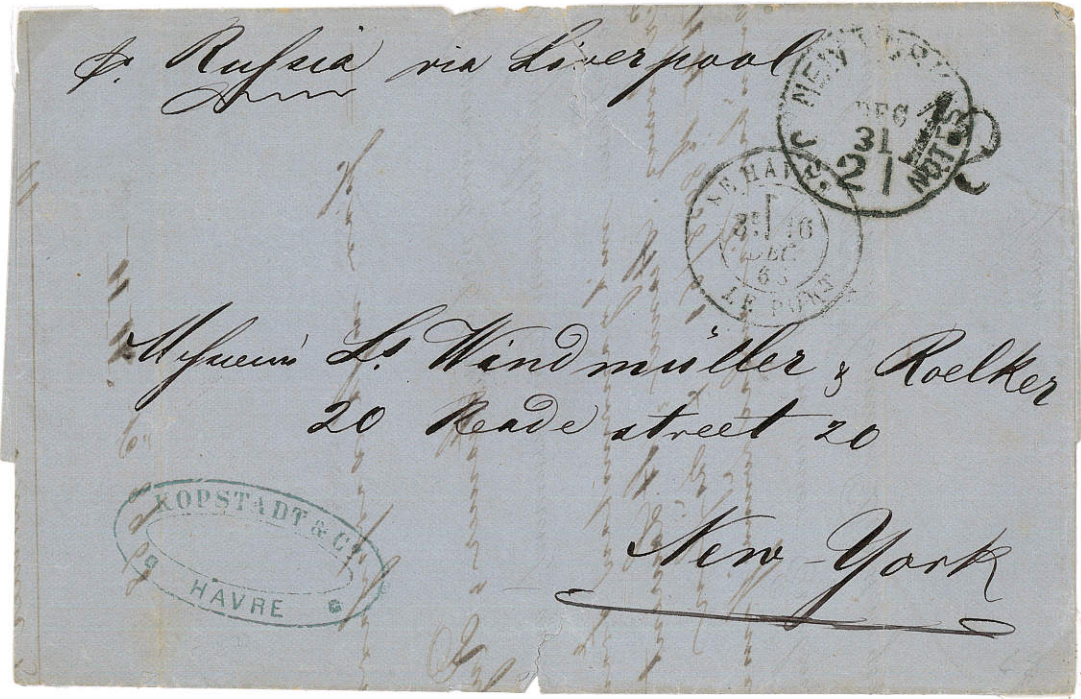 pr. Russia via Liverpool
NEW YORK
DEC
31
21
NOTES
2
LE HAVRE
16
DEC.
LE PORT
Messieurs Ls. Windmüller & Roelker
20 Reade street 20
New-York
KOPSTADT & Co.
HAVRE